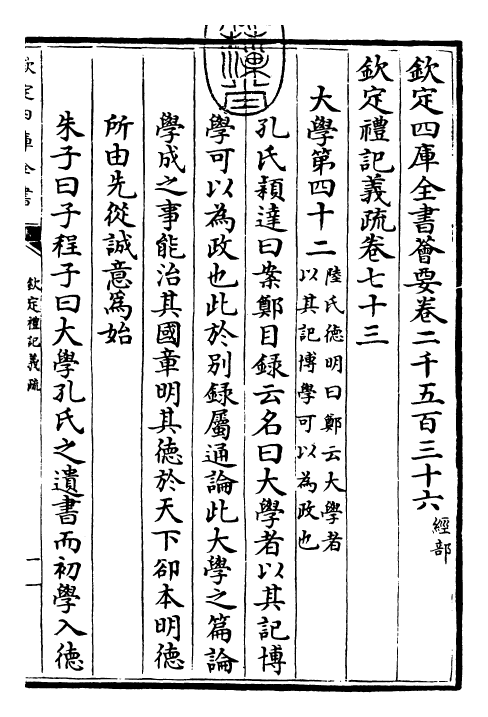 欽定四庫全書薈要卷二千五百三十六 經部
欽定禮記義疏卷七十三
大學第四十二 陸氏德明曰鄭云大學者
以其記博學可以為政也
孔氏穎達曰案鄭目録云名曰大學者以其記博
學可以為政也此於别録屬通論此大學之篇論
學成之事能治其國章明其德於天下卻本明德
所由先從誠意為始
朱子曰子程子曰大學孔氏之遺書而初學入德
欽定四庫全書
欽定禮記義疏
一